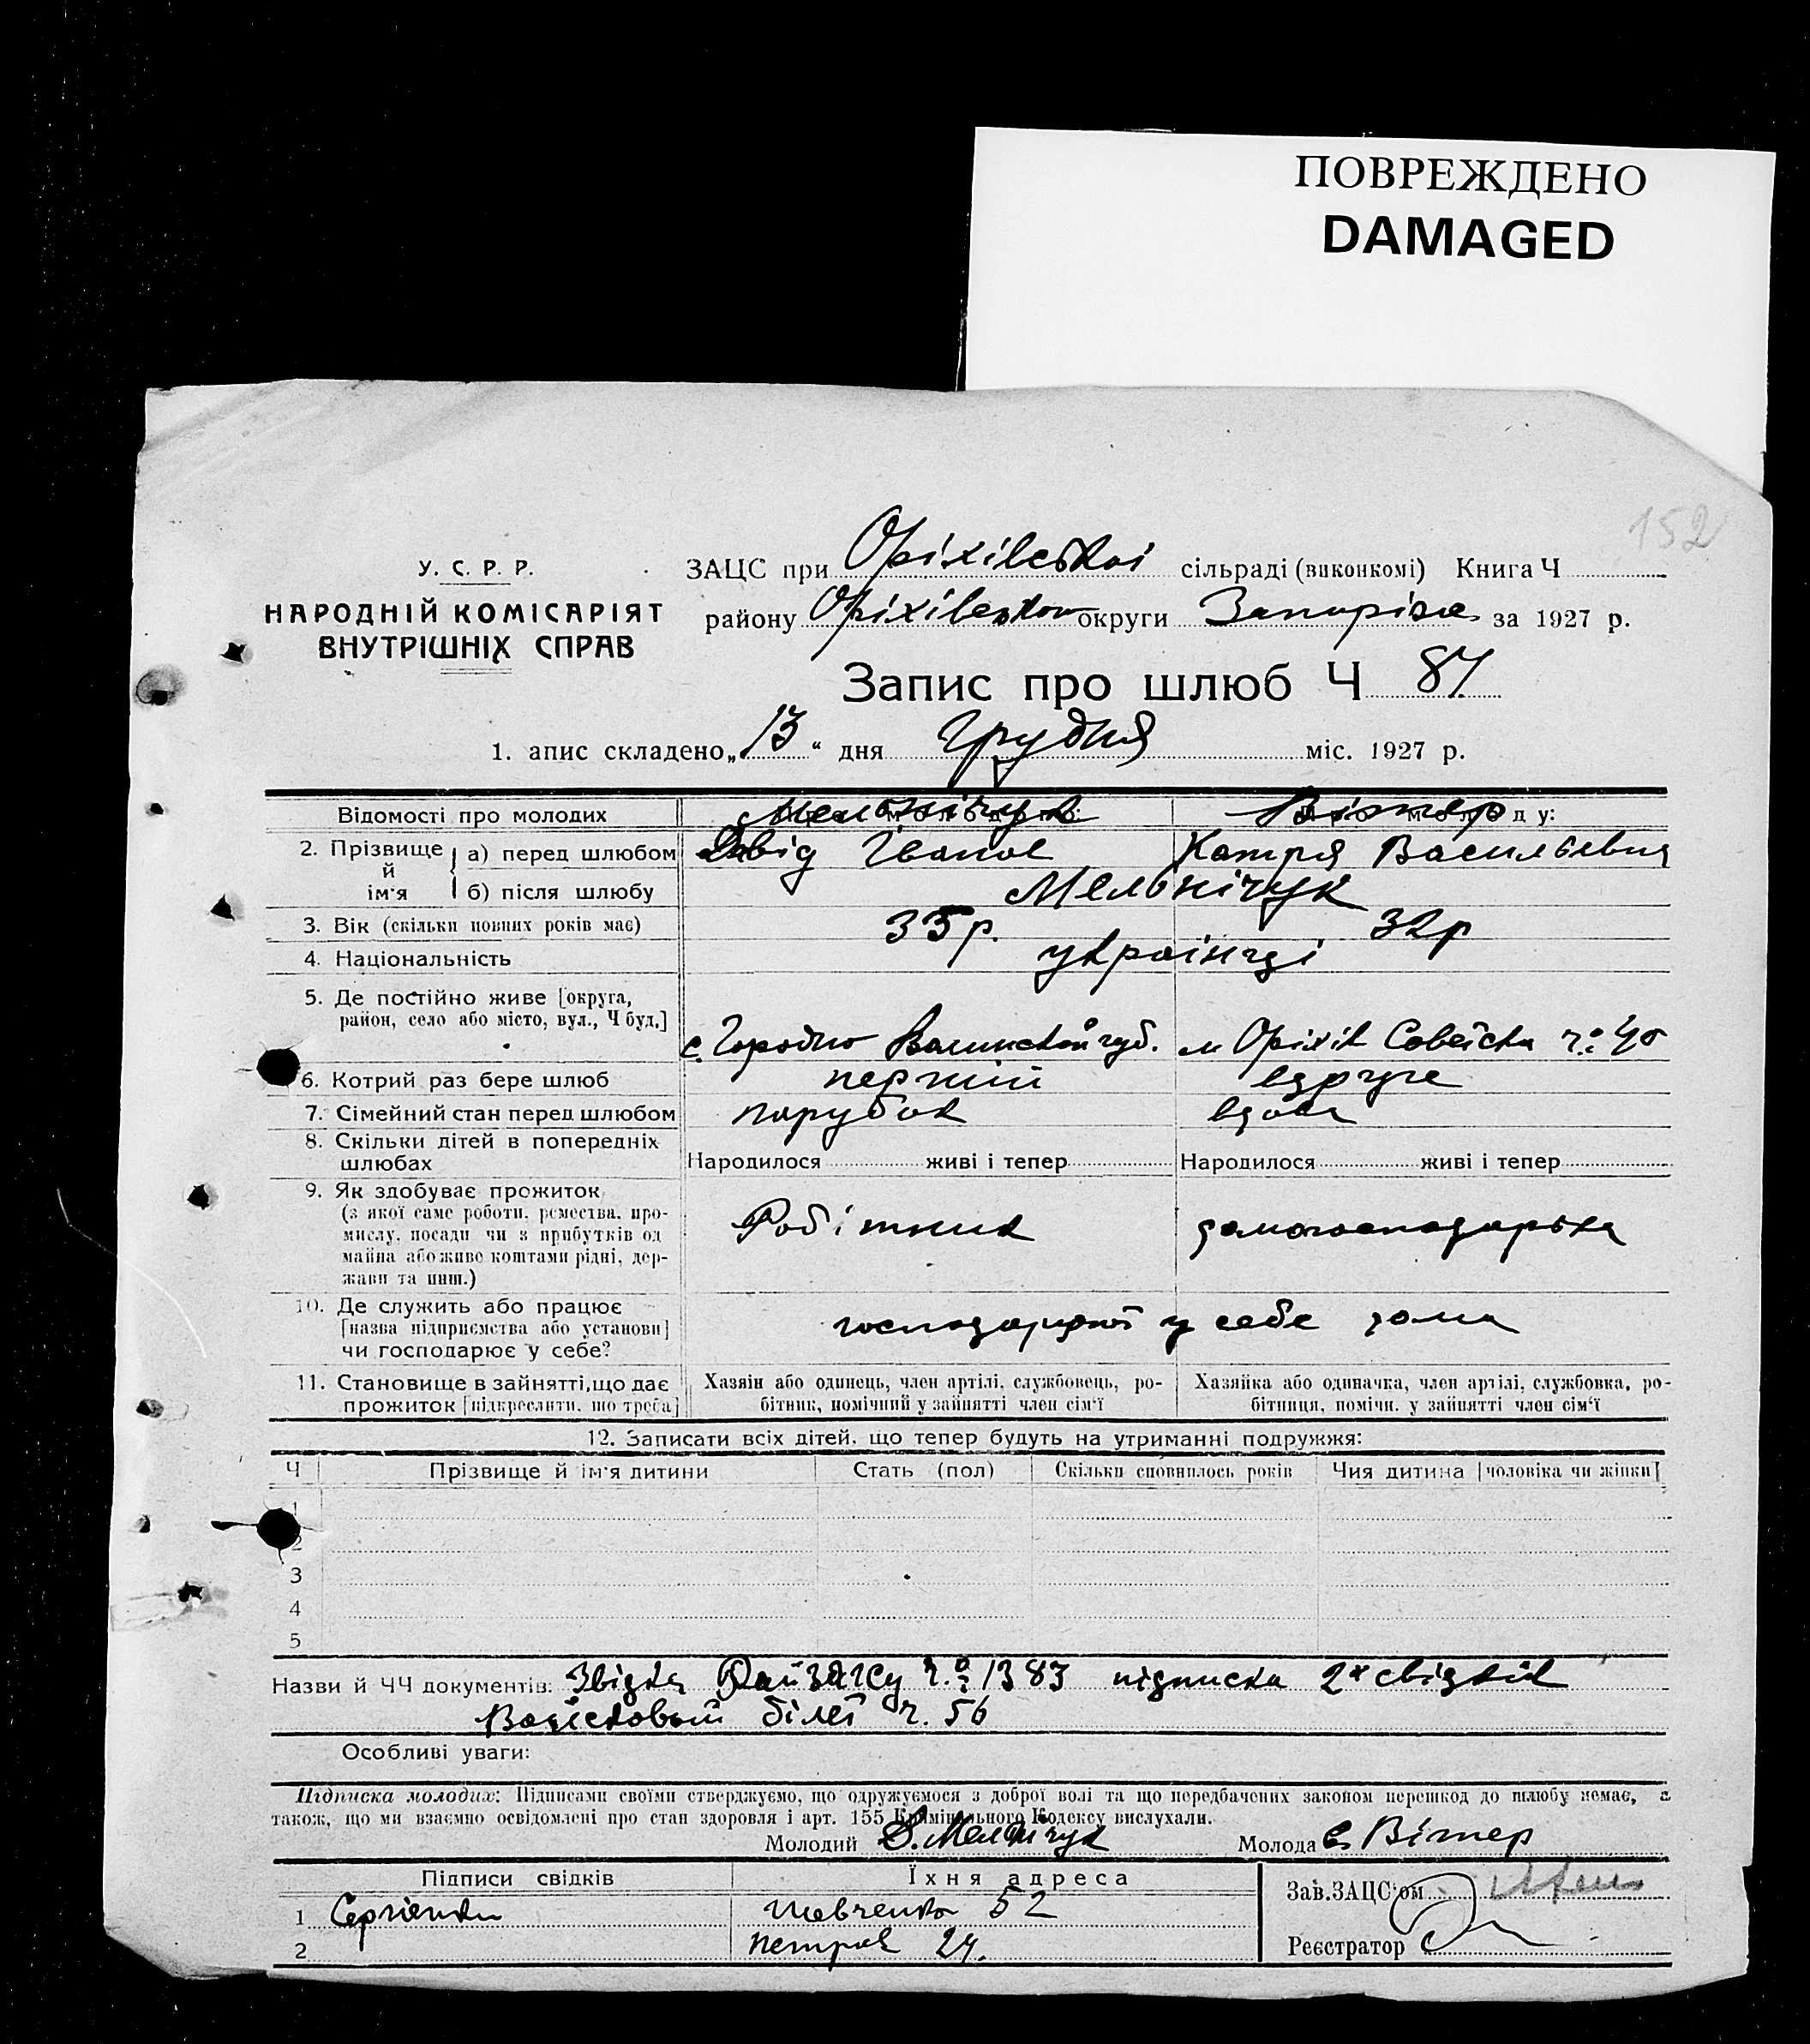 ПОВРЕЖДЕНО
DAMAGED
152
У. С. Р. Р.
НАРОДНІЙ КОМІСАРІЯТ
ВНУТРІШНІХ СПРАВ
ЗАЦС при Оріхівської сільраді (виконкомі) Книга Ч
району Оріхівськом округи Запоріза за 1927 р.
Запис про шлюб Ч 87
1. апис складено „ 13 “ дня Грудня міс. 1927 р.
Відомості про молодих Мельнічук Вітер ду:
2. Прізвище й ім'я а) перед шлюбом Давід Іванов Катря Васильевня
б) після шлюбу Мельнічук
3. Вік (скільки повних років має) 35 р. 32 р
4. Національність українці
5. Де постійно живе [округа,
район, село або місто, вул., Ч буд.]
с. Городно Волинской губ. м Оріхів Совєїска ч: 40
6. Котрий раз бере шлюб перший вдруге
7. Сімейний стан перед шлюбом парубок вдова
8. Скільки дітей в попередніх
шлюбах Народилося живі і тепер Народилося живі і тепер
9. Як здобуває прожиток
(з якої саме роботи, ремества, про-
мислу, посади чи з прибутків од
майна або живе коштами рідні, дер-
жави та инш.)
Робітник домогосподарька
10. Де служить або працює
[назва підприємства або установи]
чи господарює у себе?
у себе дома
11. Становище в зайнятті, що дає
прожиток [підкреслити, що треба]
Хазяїн або одинець, член артілі, службовець, ро-
бітник, помічний у зайнятті член сім'ї
Хазяйка або одиначка, член артілі, службовка, ро-
бітниця, помічн. у зайнятті член сім'ї
12. Записати всіх дітей, що тепер будуть на утриманні подружжя:
Ч Прізвище й ім'я дитини Стать (пол) Скільки сповнилось років Чия дитина [чоловіка чи жінки]
1
2
3
4
5
Назви й ЧЧ документів: Звідка РайЗАГСу ч. 1383 підписка 2х свідків
білет ч. 56
Особливі уваги:
Підписка молодих: Підписами своїми стверджуємо, що одружуємося з доброї волі та що передбачених законом перешкод до шлюбу немає, а
також, що ми взаємно освідомлені про стан здоровля і арт. 155 Кримінального Кодексу вислухали.
Молодий Д. Мельнічук Молода Вітер
Підписи свідків Їхня адреса
Зав. ЗАЦС'ом
1 Сергієнко Шевченко 52
2 Петров 24.
Реєстратор